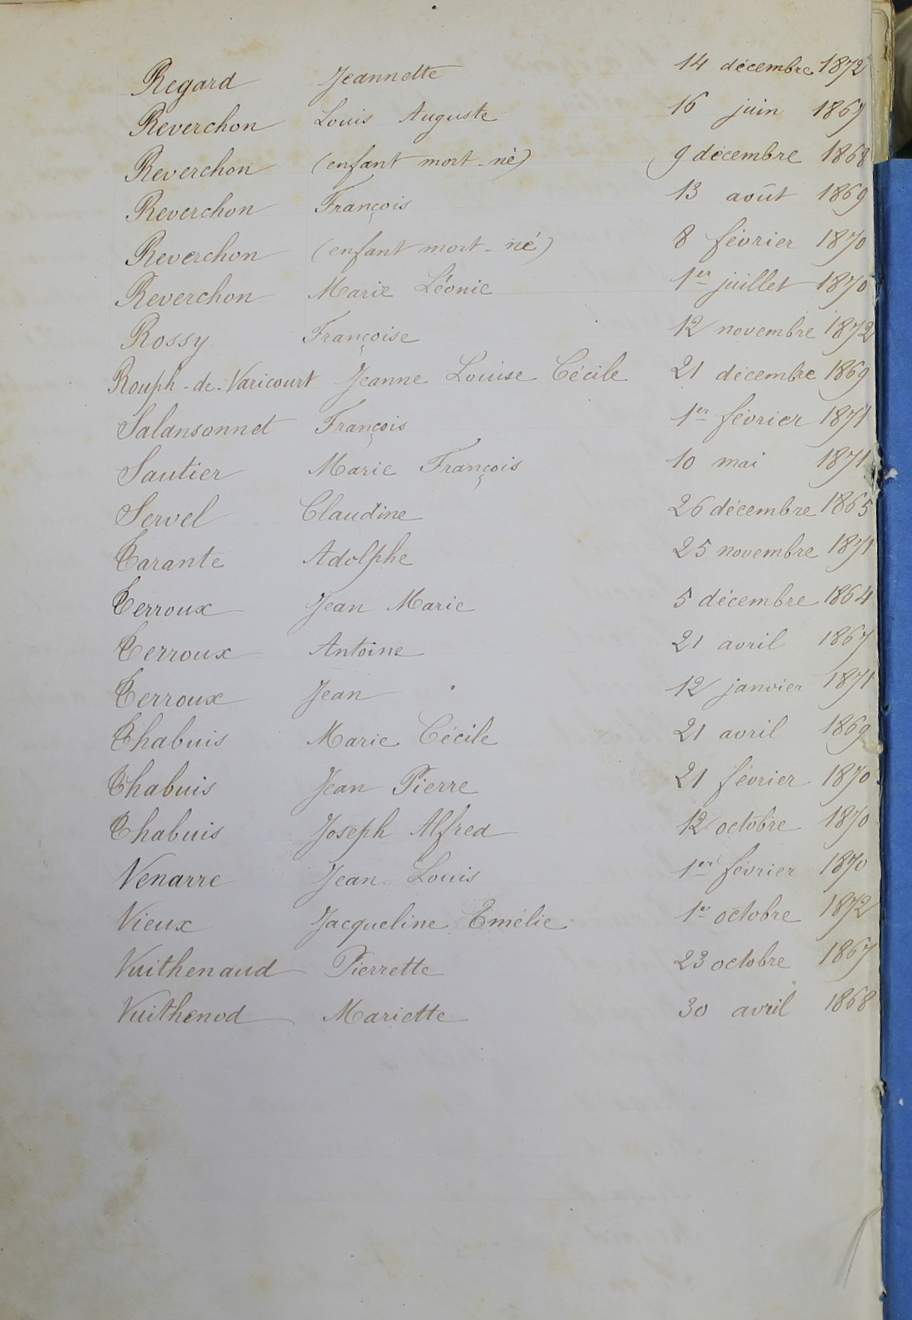 Regard Jeannette 14 décembre 1872
Reverchon Louis Auguste 16 juin 1867
Reverchon (enfant mort-né) 9 décembre 1868
Reverchon François 13 août 1869
Reverchon (enfant mort-né) 8 février 1870
Reverchon Marie Léonie 1er juillet 1870
Rossy Françoise 12 novembre 1872
Rouph-de-Varicourt Jeanne Louise Cécile 21 décembre 1869
Salansonnet François 1er février 1871
Sautier Marie François 10 mai 1871
Servel Claudine 26 décembre 1865
Tarante Adolphe 25 novembre 1871
Terroux Jean Marie 5 décembre 1864
Terroux Antoine 21 avril 1867
Terroux Jean 12 janvier 1871
Thabuis Marie Cécile 21 avril 1869
Thabuis Jean Pierre 21 février 1870
Thabuis Joseph Alfred 12 octobre 1870
Venarre Jean Louis 1er février 1870
Vieux Jacqueline Emélie 1er octobre 1872
Vuithenaud Pierrette 23 octobre 1867
Vuithenod Mariette 30 avril 1868